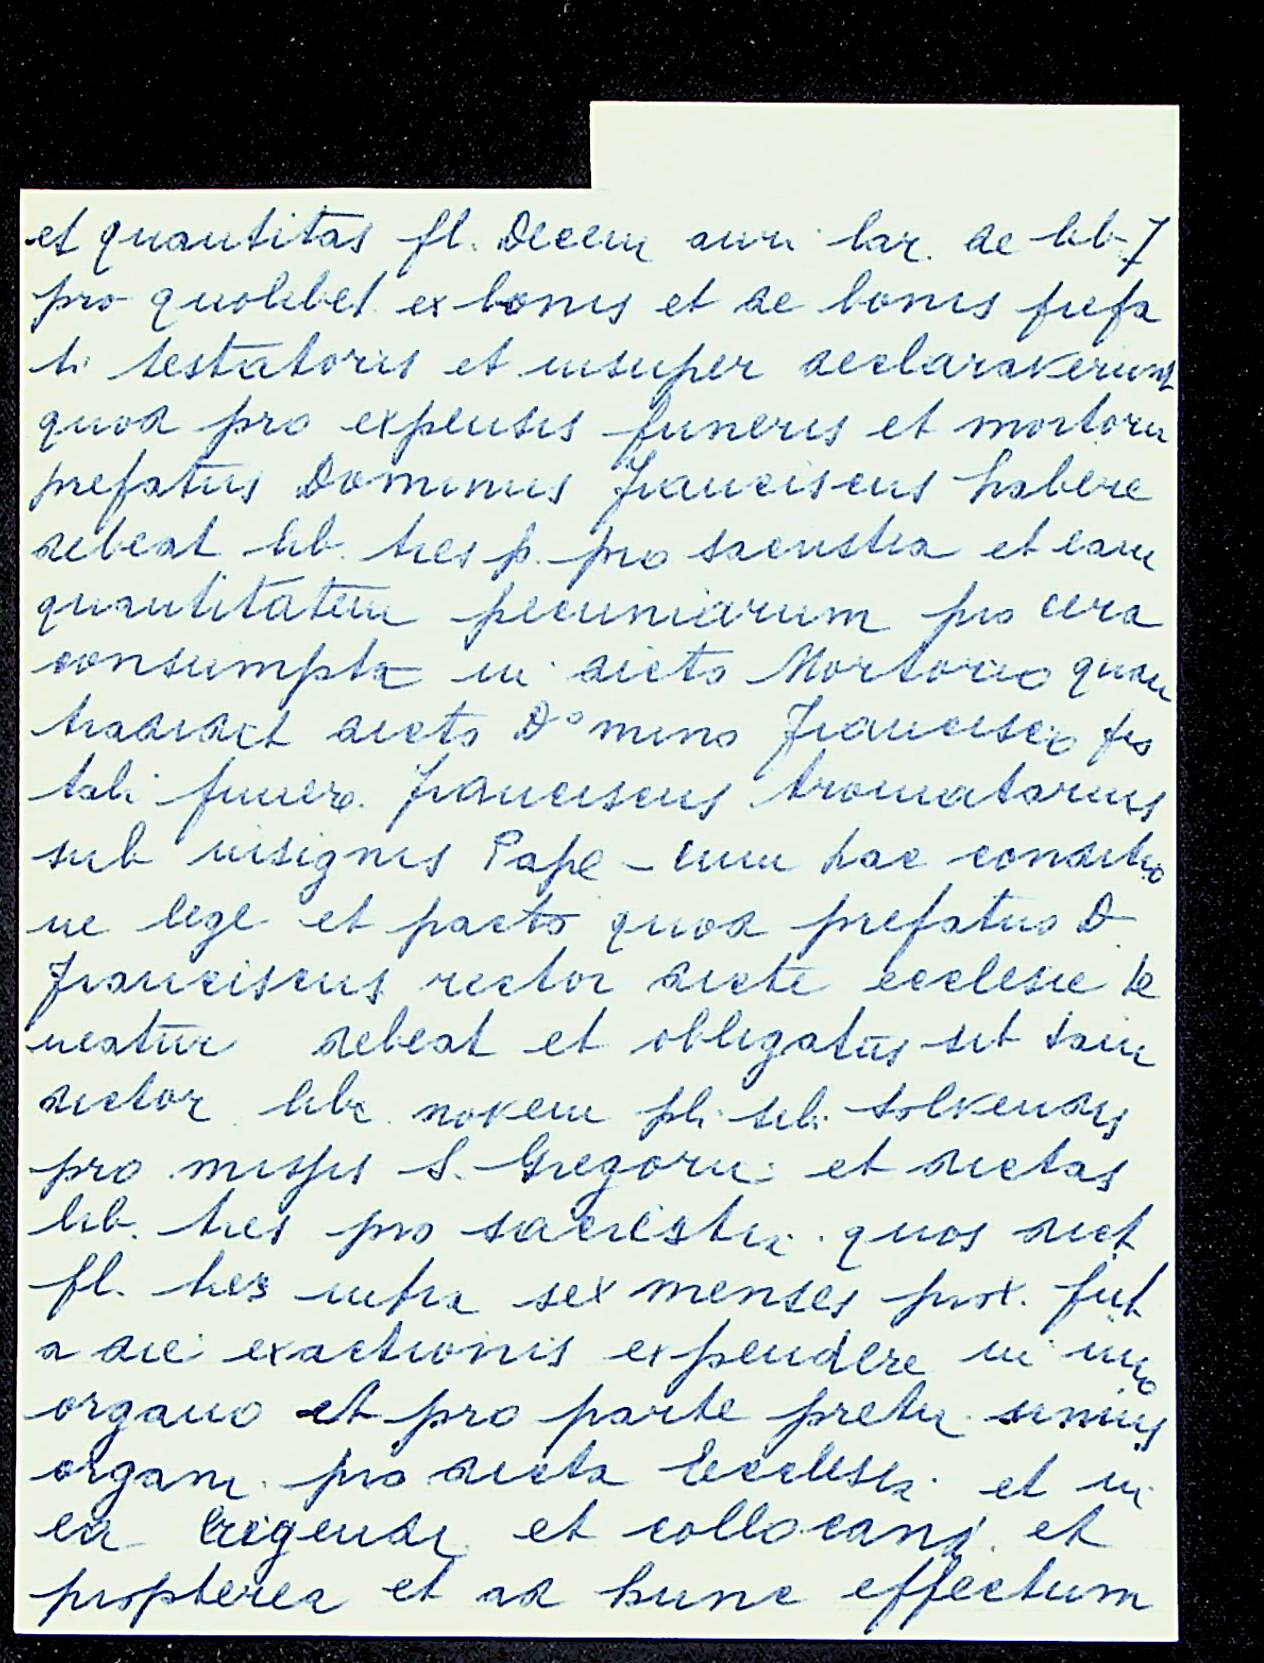 et quantitas fl. Decem auri lar. de lib. 7
pro quolibet ex bonis et de bonis prefa
ti testatoris et insuper declaraverunt
quod pro expensis funeris et mortorii
prefatus Dominus Franciscus habere
debeat lib. tres p. pro sacristia et eam
quantitatem pecuniarum pro cera
consumpta in dicto Mortorio quam
tradidit dicto Domino Francisco pro
tali funere Franciscus Aromatarius
sub insignis Pape – cum hac conditio
ne lege et pacto quod prefatus D.
Franciscus rector dicte ecclesie te
neatur debeat et obligatus sit tam
dictor libr. novem pli. sibi solvendis
pro missis S. Gregorii et dictas
lib. tres pro sacristia quos dict
fl. tres infra sex menses prox. fut
a die exactionis expendere in uno
organo et pro parte pretii unius
organi pro dicta Ecclesia et in
ea erigendi et collocandi et
propterea et ad hunc effectum